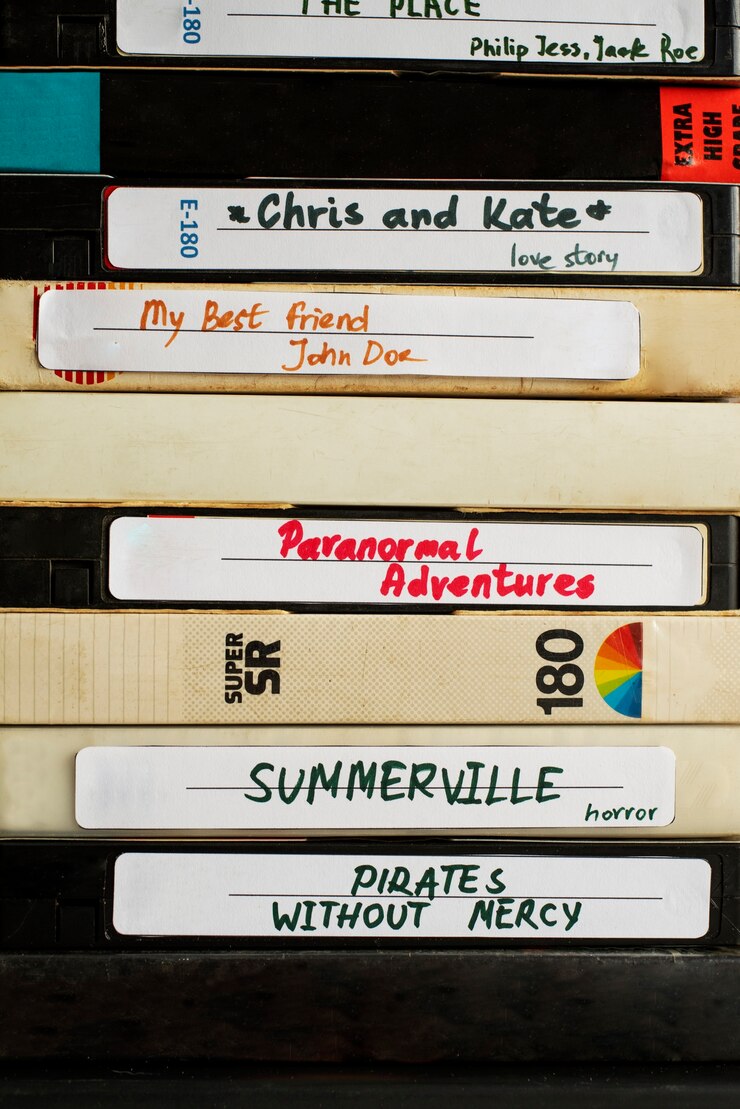 THE PLACE
-180
Philip Jess, Jack Roe
EXTRA
HIGH
GRADE
E-180
*Chris and Kate*
love story
My Best friend
John Doe
Paranormal
Adventures
SUPER
SR
180
SUMMERVILLE
horror
PIRATES
WITHOUT MERCY